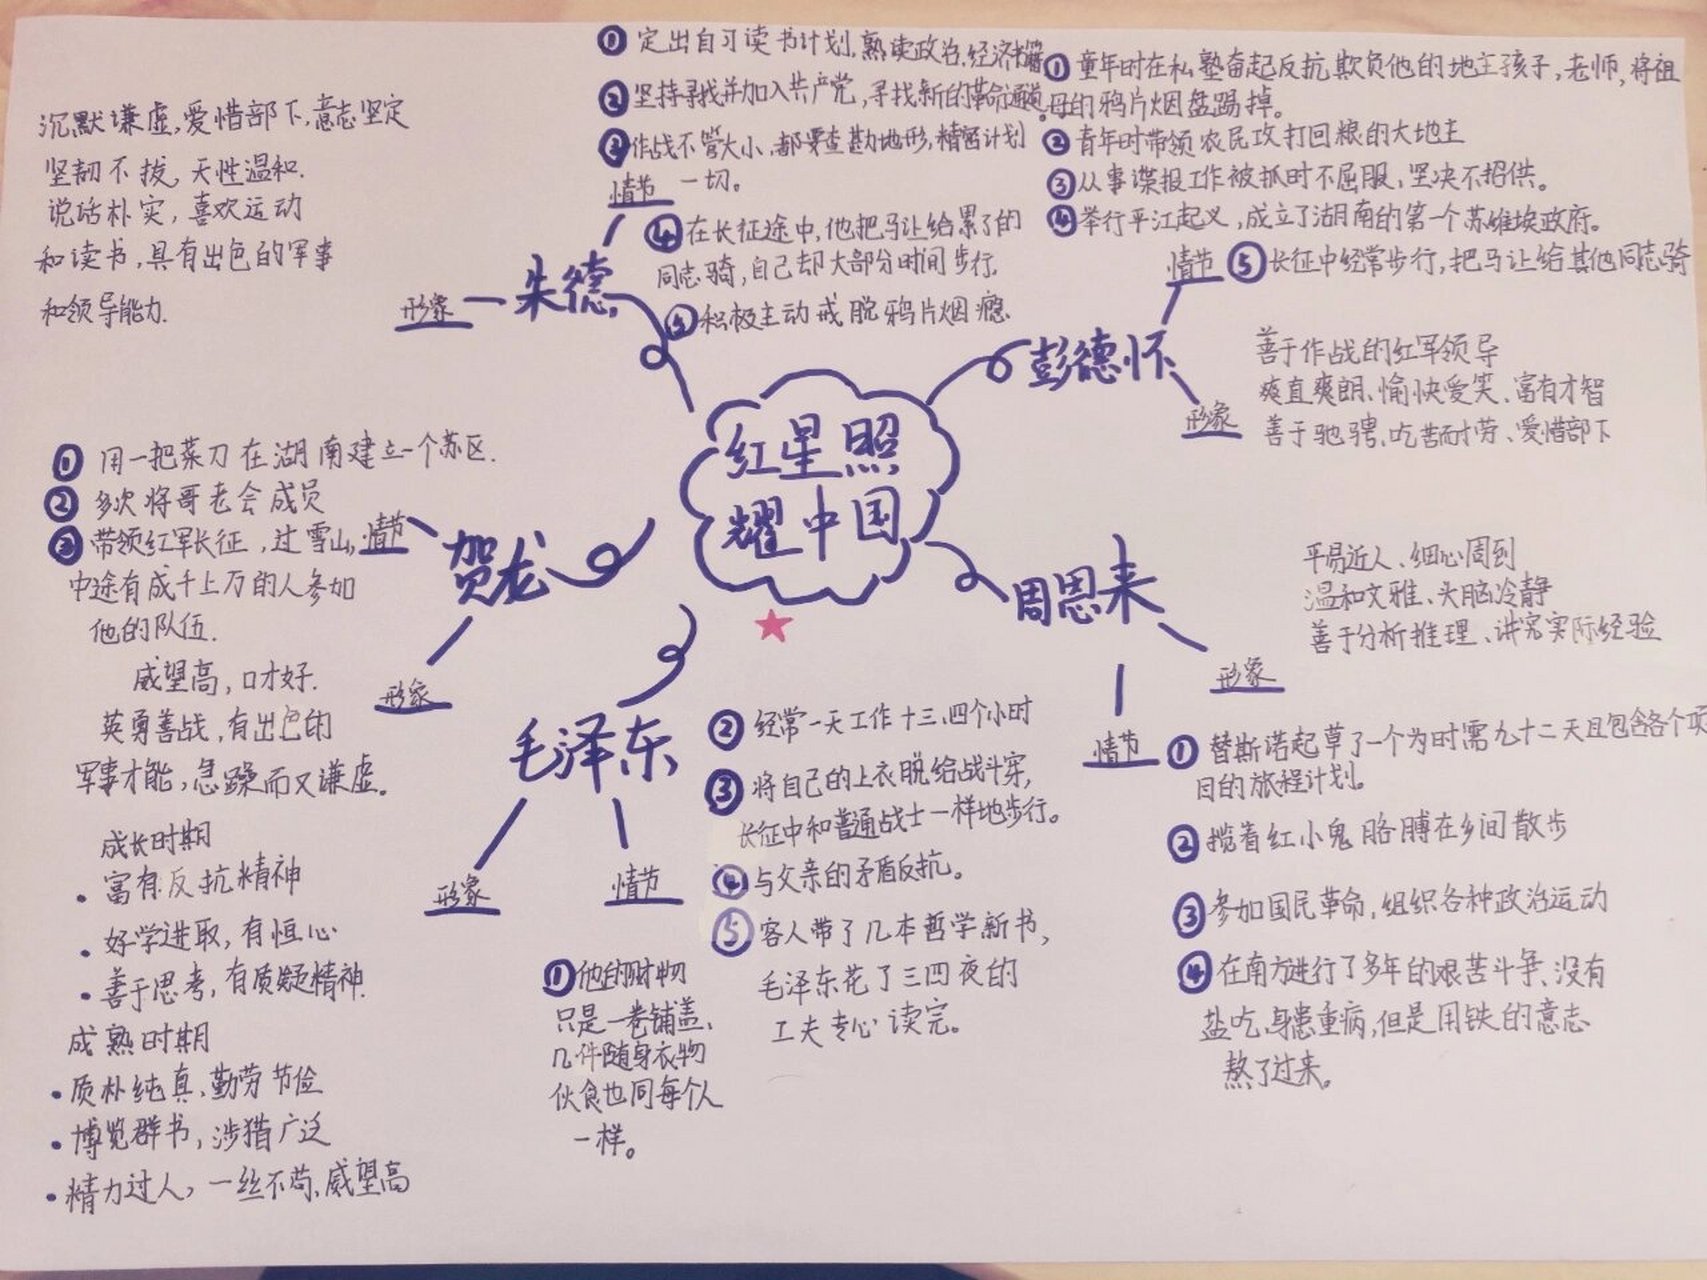 红星照
耀中国
朱德
形象
沉默谦虚,爱惜部下,意志坚定
坚韧不拔,天性温和.
说话朴实,喜欢运动
和读书,具有出色的军事
和领导能力.
情节
① 定出自习读书计划,熟读政治.经济
② 坚持寻找并加入共产党,寻找新的革命通道.
③ 作战不管大小,都要查勘地形,精密计划
一切。
④ 在长征途中,他把马让给累了的
同志骑,自己却大部分时间步行,
⑤ 积极主动戒脱鸦片烟瘾.
彭德怀
情节
① 童年时在私塾奋起反抗欺负他的地主孩子,老师,将祖
母的鸦片烟盘踢掉。
② 青年时带领农民攻打回粮的大地主
③ 从事谍报工作被抓时不屈服,坚决不招供。
④ 举行平江起义,成立了湖南的第一个苏维埃政府。
⑤ 长征中经常步行,把马让给其他同志骑
形象
善于作战的红军领导
爽直爽朗、愉快爱笑、富有才智
善于驰骋,吃苦耐劳、爱惜部下
贺龙
情节
① 用一把菜刀在湖南建立一个苏区.
② 多次将哥老会成员
③ 带领红军长征,过雪山,
中途有成千上万的人参加
他的队伍.
形象
威望高,口才好.
英勇善战,有出色的
军事才能,急躁而又谦虚。
周恩来
形象
平易近人、细心周到
温和文雅、头脑冷静
善于分析推理、讲究实际经验
情节
① 替斯诺起草了一个为时需九十二天且包含各个项
目的旅程计划。
② 揽着红小鬼胳膊在乡间散步
③ 参加国民革命,组织各种政治运动
④ 在南方进行了多年的艰苦斗争、没有
盐吃,身患重病,但是用铁的意志
熬了过来。
毛泽东
形象
成长时期
• 富有反抗精神
• 好学进取,有恒心
• 善于思考,有质疑精神.
成熟时期
• 质朴纯真、勤劳节俭
• 博览群书,涉猎广泛
• 精力过人,一丝不苟,威望高
情节
① 他的财物
只是一卷铺盖、
几件随身衣物
伙食也同每个人
一样。
② 经常一天工作十三、四个小时
③ 将自己的上衣脱给战斗穿,
长征中和普通战士一样地步行。
④ 与父亲的矛盾反抗。
⑤ 客人带了几本哲学新书,
毛泽东花了三四夜的
工夫专心读完。